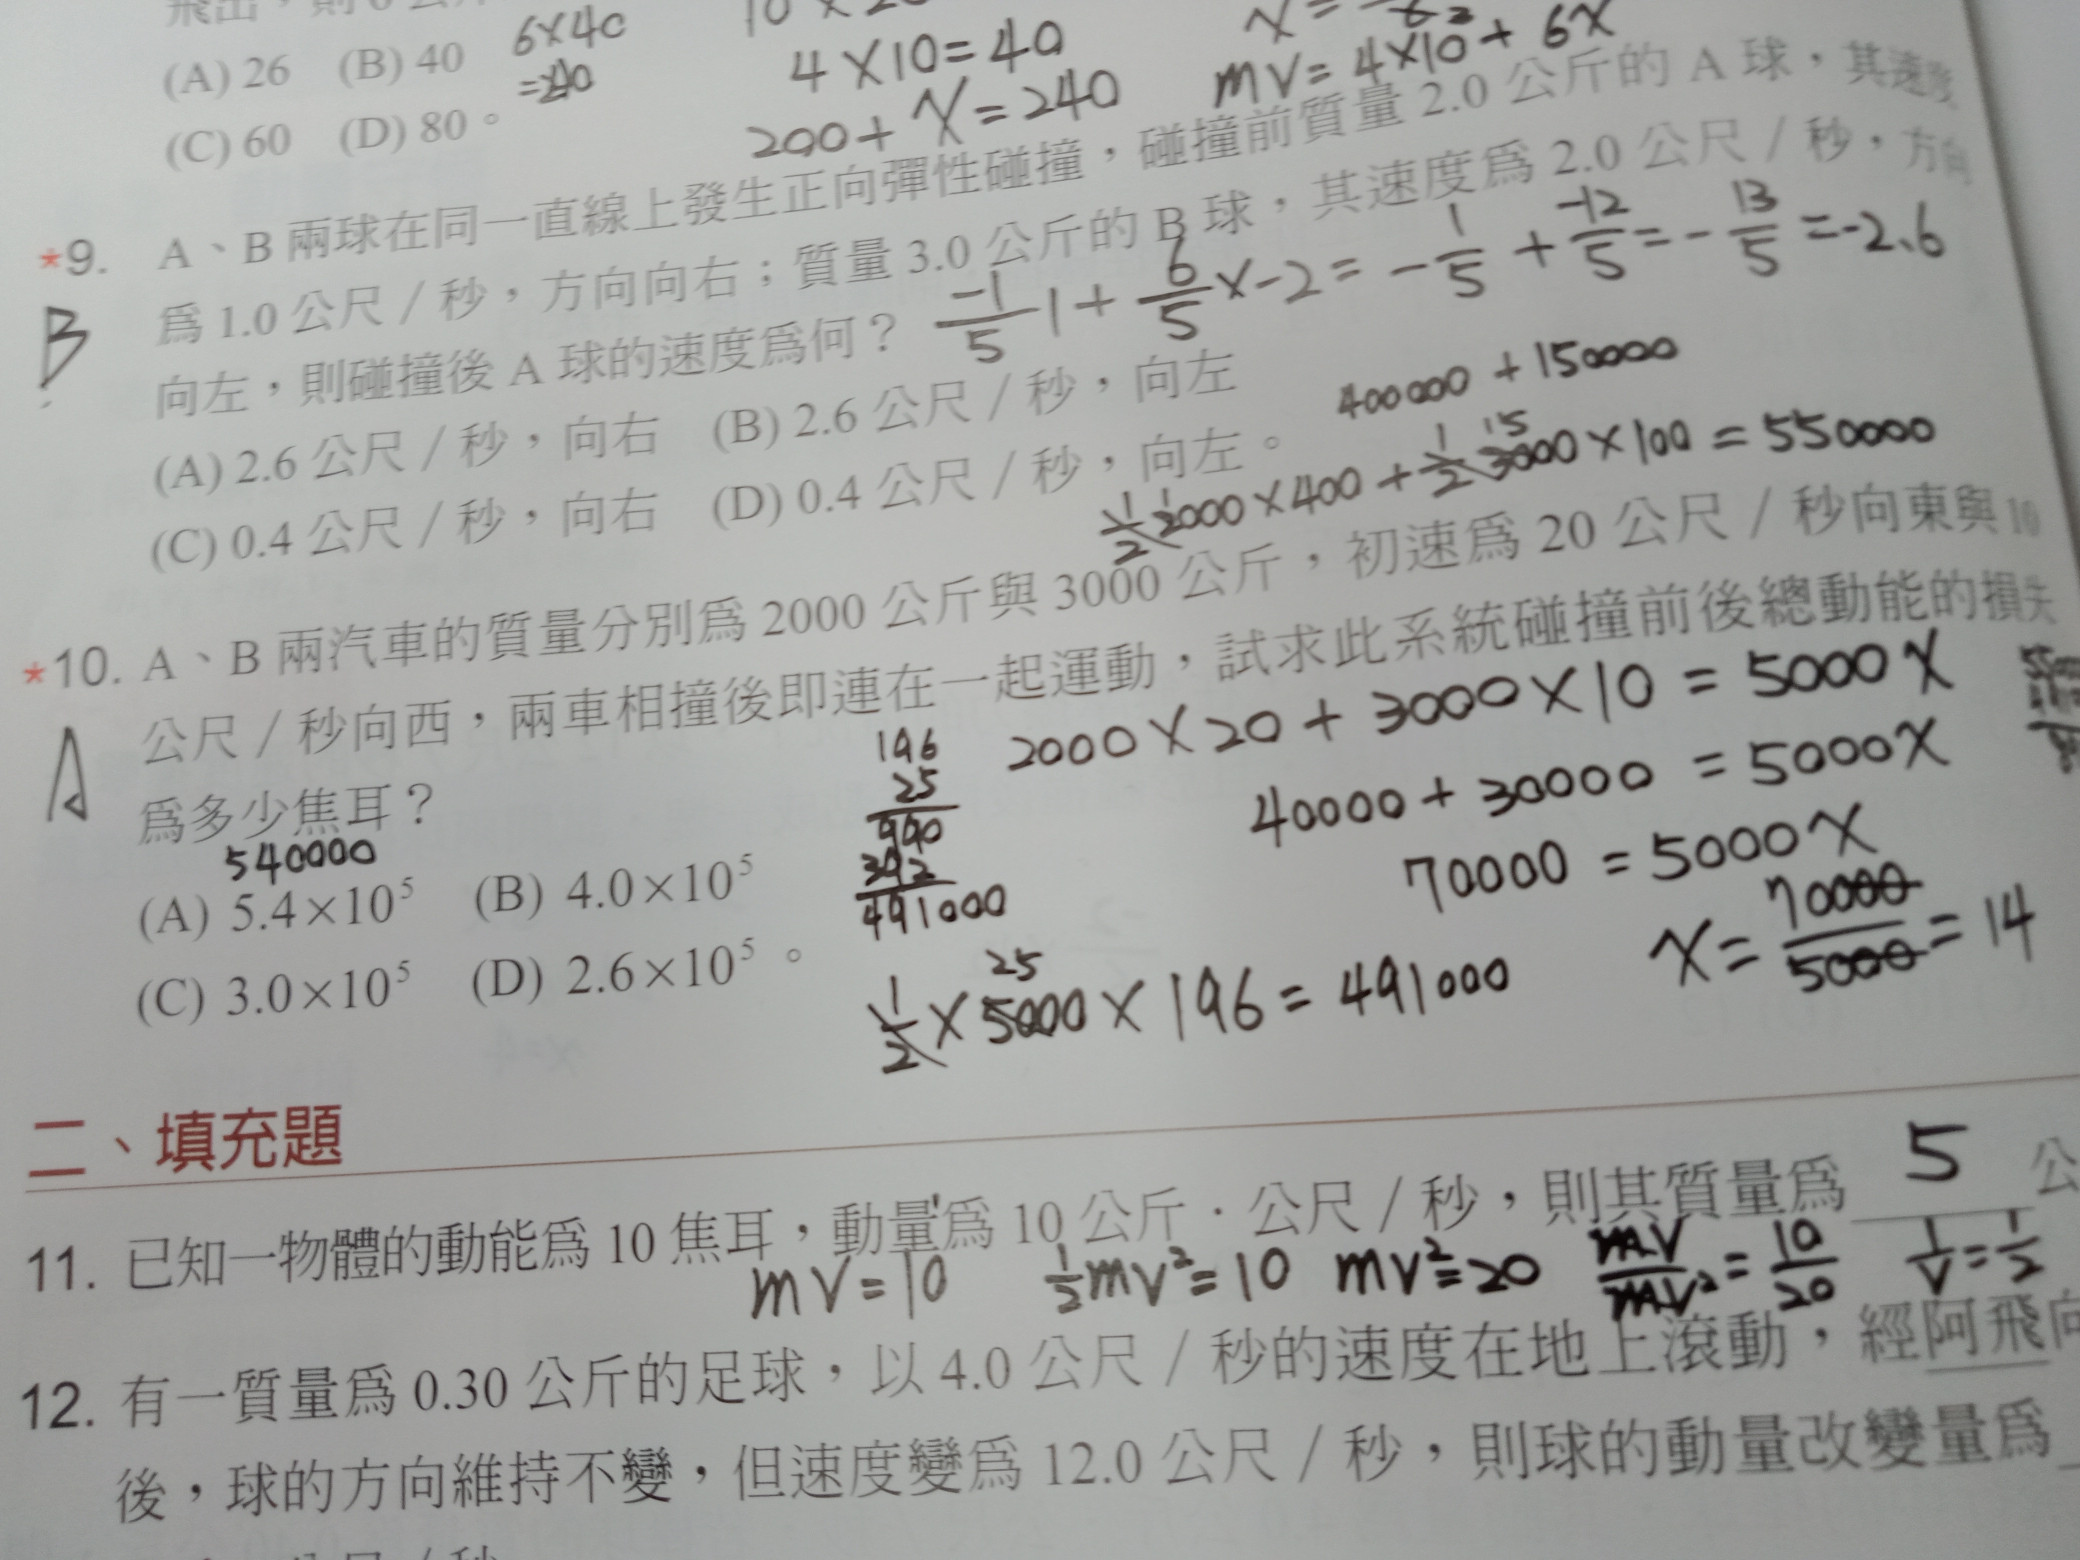 (A) 26 (B) 40 6×40
=240
4×10=40
(C) 60 (D) 80。
200+x=240
mv=4×10+6x
*9. A、B 兩球在同一直線上發生正向彈性碰撞,碰撞前質量 2.0 公斤的 A 球,其速度
B 為 1.0 公尺/秒,方向向右;質量 3.0 公斤的 B 球,其速度為 2.0 公尺/秒,方向
向左,則碰撞後 A 球的速度為何?
-1/5 1+6/5×-2=-1/5+-12/5=-13/5=-2.6
(A) 2.6 公尺/秒,向右 (B) 2.6 公尺/秒,向左
(C) 0.4 公尺/秒,向右 (D) 0.4 公尺/秒,向左。
400000+150000
1/2 2000×400+1/2 3000×100=550000
*10. A、B 兩汽車的質量分別為 2000 公斤與 3000 公斤,初速為 20 公尺/秒向東與 10
A 公尺/秒向西,兩車相撞後即連在一起運動,試求此系統碰撞前後總動能的損失
為多少焦耳?
2000×20+3000×10=5000x
40000+30000=5000x
70000=5000x
x=70000/5000=14
540000
(A) 5.4×10⁵ (B) 4.0×10⁵
(C) 3.0×10⁵ (D) 2.6×10⁵。
196
25
990
392
491000
25
1/2×5000×196=491000
二、填充題
11. 已知一物體的動能為 10 焦耳,動量為 10 公斤·公尺/秒,則其質量為 5 公
mv=10 1/2mv²=10 mv²=20 mv/mv²=10/20 1/v=1/2
12. 有一質量為 0.30 公斤的足球,以 4.0 公尺/秒的速度在地上滾動,經阿飛向
後,球的方向維持不變,但速度變為 12.0 公尺/秒,則球的動量改變量為